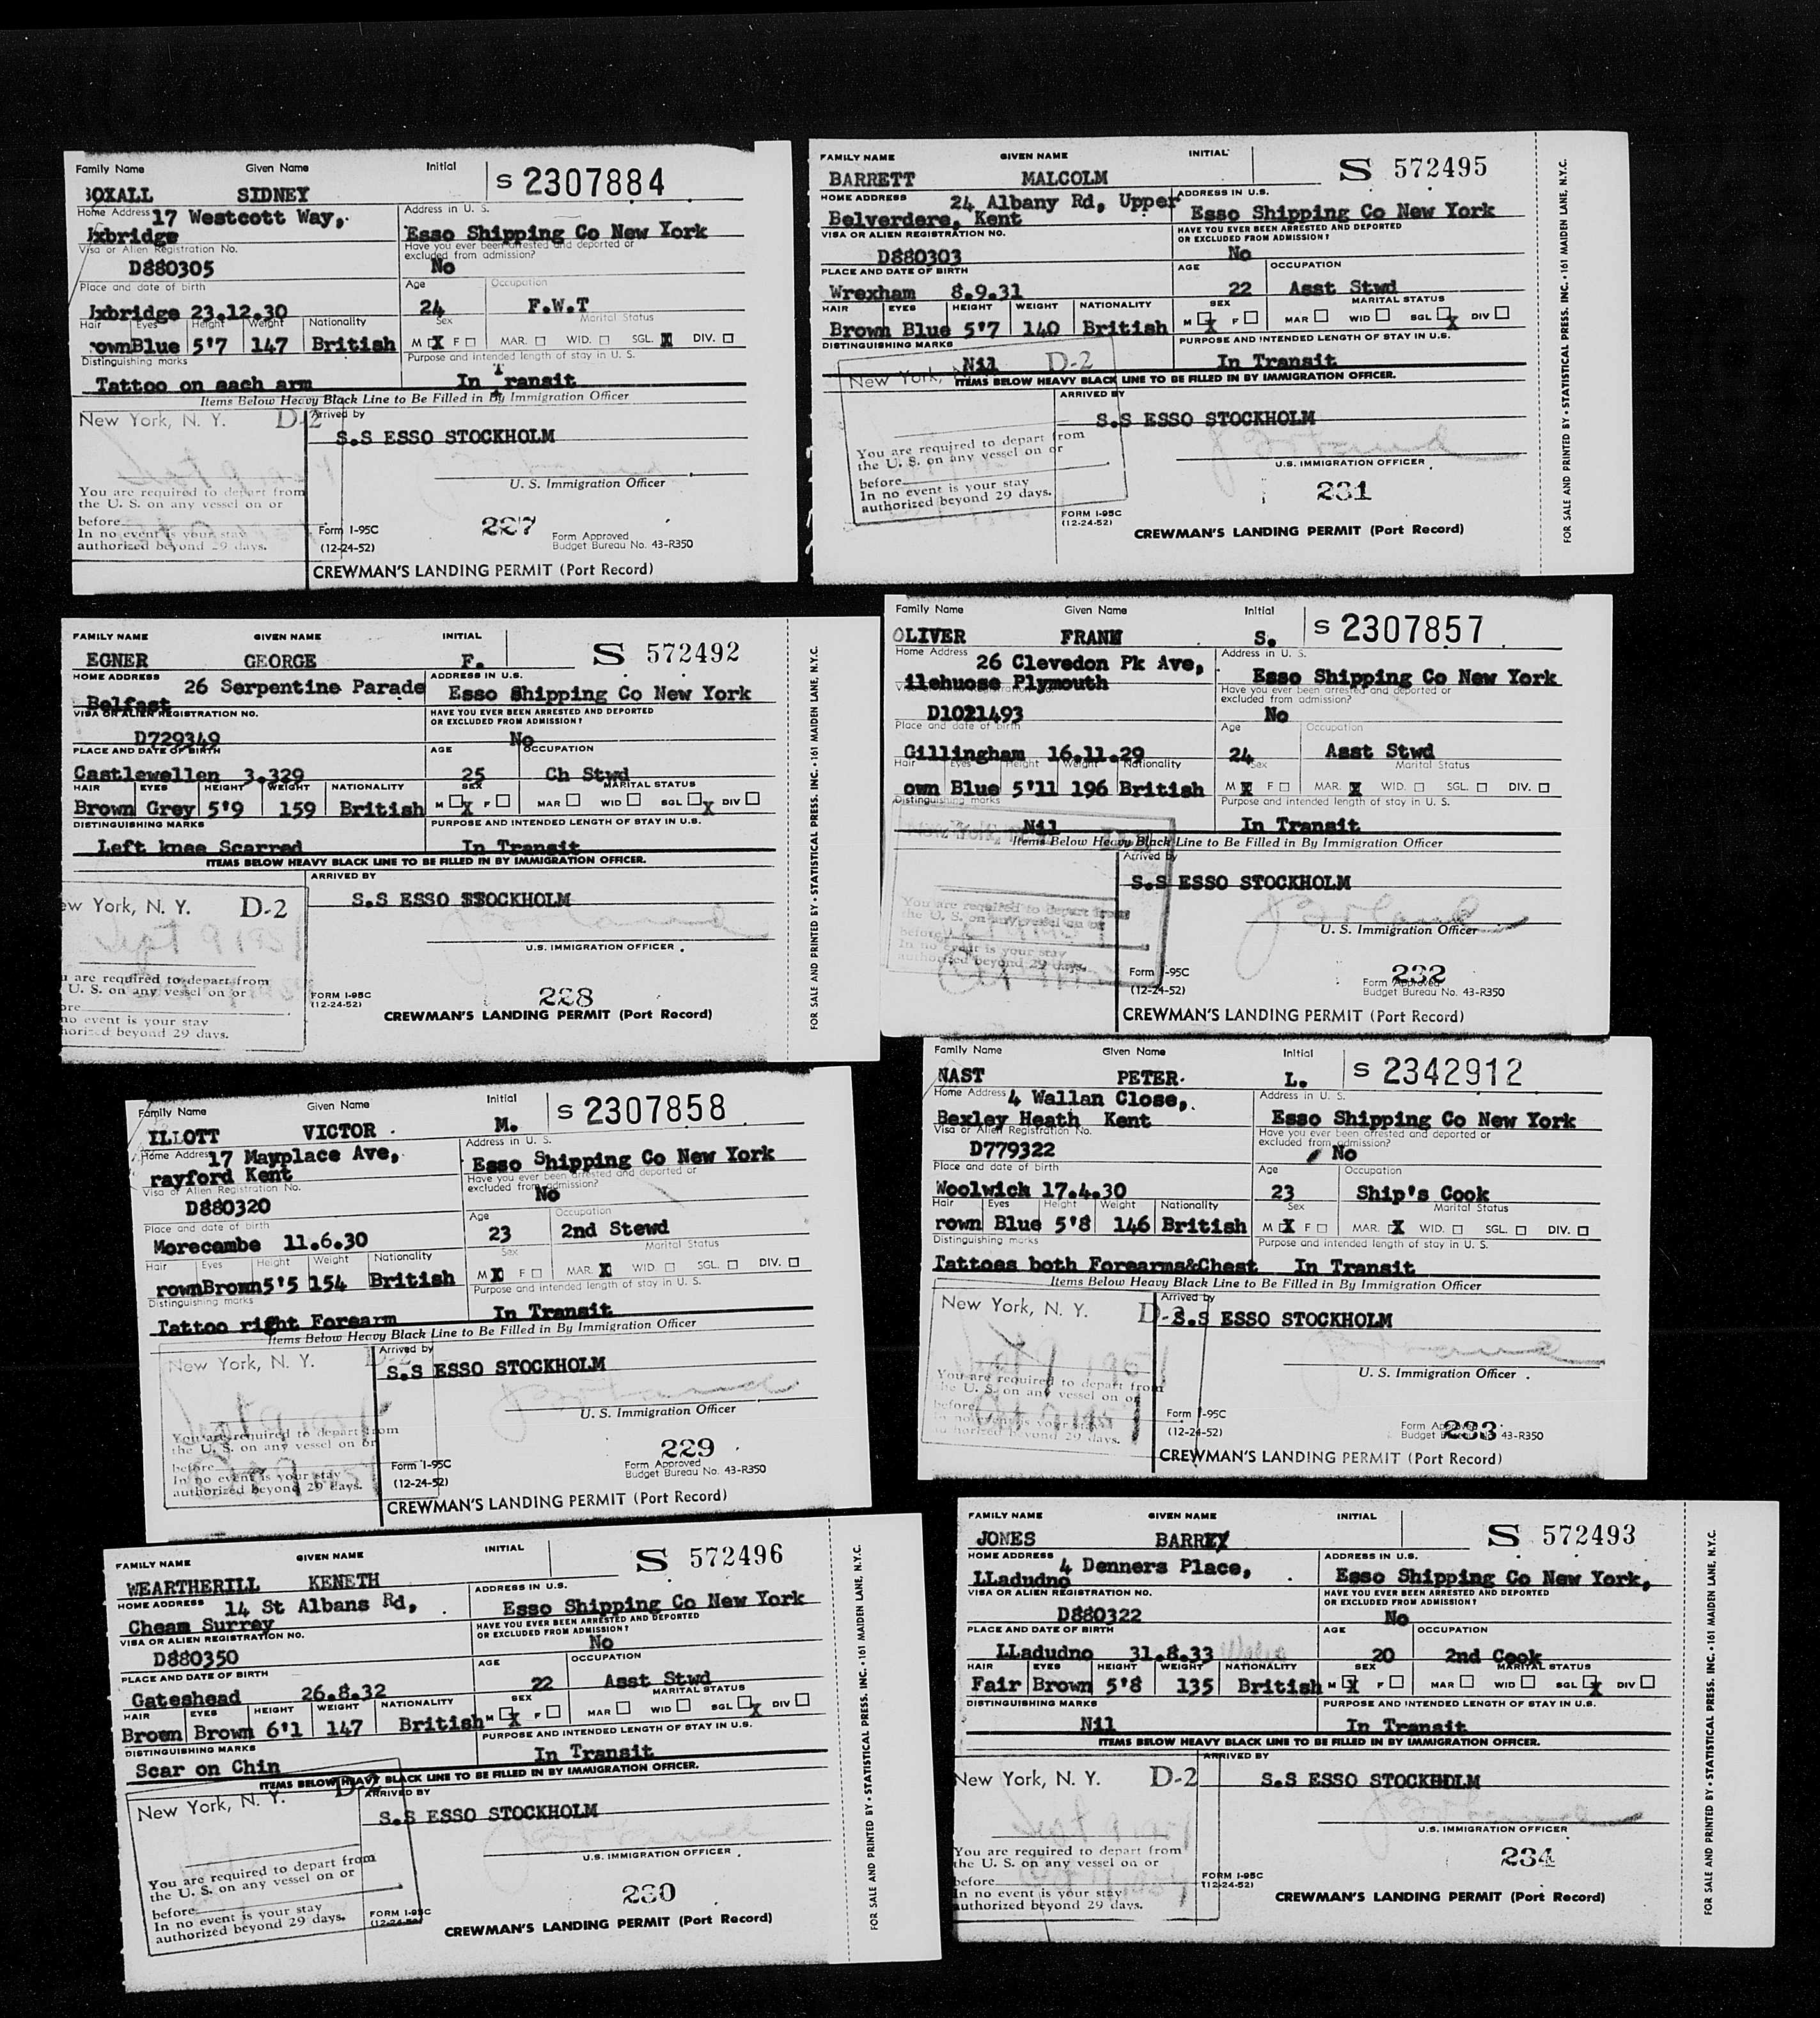 Family Name Given Name Initial S 2307884
BOXALL SIDNEY
Home Address 17 Westcott Way, Address in U. S.
Uxbridge Esso Shipping Co New York
Visa or Alien Registration No. Have you ever been arrested and deported or
excluded from admission?
D880305 No
Place and date of birth Age Occupation
Uxbridge 23.12.30 24 F.W.T
Hair Eyes Height Weight Nationality Sex Marital Status
rownBlue 5'7 147 British M X F MAR. WID. SGL. X DIV.
Distinguishing marks Purpose and intended length of stay in U. S.
Tattoo on each arm In Transit
Items Below Heavy Black Line to Be Filled in By Immigration Officer
New York, N. Y. D-2 Arrived by
S.S ESSO STOCKHOLM
You are required to depart from U. S. Immigration Officer
the U. S. on any vessel on or
before
In no event is your stay
authorized beyond 29 days.
Form I-95C 227 Form Approved
(12-24-52) Budget Bureau No. 43-R350
CREWMAN'S LANDING PERMIT (Port Record)
FAMILY NAME GIVEN NAME INITIAL S 572495
BARRETT MALCOLM
HOME ADDRESS 24 Albany Rd, Upper ADDRESS IN U.S.
Belverdere, Kent Esso Shipping Co New York
VISA OR ALIEN REGISTRATION NO. HAVE YOU EVER BEEN ARRESTED AND DEPORTED
OR EXCLUDED FROM ADMISSION?
D880303 No
PLACE AND DATE OF BIRTH AGE OCCUPATION
Wrexham 8.9.31 22 Asst Stwd
HAIR EYES HEIGHT WEIGHT NATIONALITY SEX MARITAL STATUS
Brown Blue 5'7 140 British M X F MAR WID SGL X DIV
DISTINGUISHING MARKS PURPOSE AND INTENDED LENGTH OF STAY IN U.S.
Nil In Transit
New York, D-2
ITEMS BELOW HEAVY BLACK LINE TO BE FILLED IN BY IMMIGRATION OFFICER.
ARRIVED BY
S.S ESSO STOCKHOLM
You are required to depart from
the U. S. on any vessel on or
before
In no event is your stay
authorized beyond 29 days.
U.S. IMMIGRATION OFFICER
231
FORM I-95C
(12-24-52)
CREWMAN'S LANDING PERMIT (Port Record)
FOR SALE AND PRINTED BY • STATISTICAL PRESS. INC. • 161 MAIDEN LANE, N.Y.C.
FAMILY NAME GIVEN NAME INITIAL S 572492
EGNER GEORGE F.
HOME ADDRESS 26 Serpentine Parade ADDRESS IN U.S.
Belfast Esso Shipping Co New York
VISA OR ALIEN REGISTRATION NO. HAVE YOU EVER BEEN ARRESTED AND DEPORTED
OR EXCLUDED FROM ADMISSION?
D729349 No
PLACE AND DATE OF BIRTH AGE OCCUPATION
Castlewellen 3.329 25 Ch Stwd
HAIR EYES HEIGHT WEIGHT NATIONALITY SEX MARITAL STATUS
Brown Grey 5'9 159 British M X F MAR WID SGL X DIV
DISTINGUISHING MARKS PURPOSE AND INTENDED LENGTH OF STAY IN U.S.
Left knee Scarred In Transit
ITEMS BELOW HEAVY BLACK LINE TO BE FILLED IN BY IMMIGRATION OFFICER.
ew York, N. Y. D-2 ARRIVED BY
S.S ESSO STOCKHOLM
U.S. IMMIGRATION OFFICER
are required to depart from
U. S. on any vessel on or
ore
no event is your stay
horized beyond 29 days.
FORM I-95C
(12-24-52)
228
CREWMAN'S LANDING PERMIT (Port Record)
FOR SALE AND PRINTED BY • STATISTICAL PRESS. INC. • 161 MAIDEN LANE, N.Y.C.
Family Name Given Name Initial S 2307857
OLIVER FRANK S.
Home Address 26 Clevedon Pk Ave, Address in U. S.
ilehuose Plymouth Esso Shipping Co New York
Have you ever been arrested and deported or
excluded from admission?
D1021493 No
Place and date of birth Age Occupation
Gillingham 16.11.29 24 Asst Stwd
Hair Eyes Height Weight Nationality Sex Marital Status
own Blue 5'11 196 British M X F MAR. X WID. SGL. DIV.
Distinguishing marks Purpose and intended length of stay in U. S.
Nil In Transit
Items Below Heavy Black Line to Be Filled in By Immigration Officer
Arrived by
S.S ESSO STOCKHOLM
You are required to depart from
the U. S. on any vessel on or
before
In no event is your stay
authorized beyond 29 days.
U. S. Immigration Officer
232
Form I-95C Form Approved
(12-24-52) Budget Bureau No. 43-R350
CREWMAN'S LANDING PERMIT (Port Record)
Family Name Given Name Initial S 2307858
ILLOTT VICTOR M.
Home Address 17 Mayplace Ave, Address in U. S.
rayford Kent Esso Shipping Co New York
Visa or Alien Registration No. Have you ever been arrested and deported or
excluded from admission?
D880320 No
Place and date of birth Age Occupation
Morecambe 11.6.30 23 2nd Stewd
Hair Eyes Height Weight Nationality Sex Marital Status
rownBrown5'5 154 British M X F MAR. X WID SGL. DIV.
Distinguishing marks Purpose and intended length of stay in U. S.
Tattoo right Forearm In Transit
Items Below Heavy Black Line to Be Filled in By Immigration Officer
New York, N. Y. D-2 Arrived by
S.S ESSO STOCKHOLM
U. S. Immigration Officer
You are required to depart from
the U. S. on any vessel on or
before
In no event is your stay
authorized beyond 29 days.
229
Form I-95C Form Approved
(12-24-52) Budget Bureau No. 43-R350
CREWMAN'S LANDING PERMIT (Port Record)
Family Name Given Name Initial S 2342912
NAST PETER L.
Home Address 4 Wallan Close, Address in U. S.
Bexley Heath Kent Esso Shipping Co New York
Visa or Alien Registration No. Have you ever been arrested and deported or
excluded from admission?
D779322 No
Place and date of birth Age Occupation
Woolwick 17.4.30 23 Ship's Cook
Hair Eyes Height Weight Nationality Sex Marital Status
rown Blue 5'8 146 British M X F MAR. X WID. SGL. DIV.
Distinguishing marks Purpose and intended length of stay in U. S.
Tattoes both Forearms&Chest In Transit
Items Below Heavy Black Line to Be Filled in By Immigration Officer
New York, N. Y. D-2 Arrived by
S.S ESSO STOCKHOLM
You are required to depart from
the U. S. on any vessel on or
before
In no event is your stay
authorized beyond 29 days.
U. S. Immigration Officer
233
Form I-95C Form Approved
(12-24-52) Budget Bureau No. 43-R350
CREWMAN'S LANDING PERMIT (Port Record)
FAMILY NAME GIVEN NAME INITIAL S 572496
WEARTHERILL KENETH
HOME ADDRESS 14 St Albans Rd, ADDRESS IN U.S.
Cheam Surrey Esso Shipping Co New York
VISA OR ALIEN REGISTRATION NO. HAVE YOU EVER BEEN ARRESTED AND DEPORTED
OR EXCLUDED FROM ADMISSION?
D880350 No
PLACE AND DATE OF BIRTH AGE OCCUPATION
Gateshead 26.8.32 22 Asst Stwd
HAIR EYES HEIGHT WEIGHT NATIONALITY SEX MARITAL STATUS
Brown Brown 6'1 147 British M X F MAR WID SGL X DIV
DISTINGUISHING MARKS PURPOSE AND INTENDED LENGTH OF STAY IN U.S.
Scar on Chin In Transit
ITEMS BELOW HEAVY BLACK LINE TO BE FILLED IN BY IMMIGRATION OFFICER.
New York, N. Y. D-2 ARRIVED BY
S.S ESSO STOCKHOLM
U.S. IMMIGRATION OFFICER
You are required to depart from
the U. S. on any vessel on or
before
In no event is your stay
authorized beyond 29 days.
FORM I-95C
(12-24-52)
230
CREWMAN'S LANDING PERMIT (Port Record)
FOR SALE AND PRINTED BY • STATISTICAL PRESS. INC. • 161 MAIDEN LANE, N.Y.C.
FAMILY NAME GIVEN NAME INITIAL S 572493
JONES BARREY
HOME ADDRESS 4 Denners Place, ADDRESS IN U.S.
LLadudno Esso Shipping Co New York,
VISA OR ALIEN REGISTRATION NO. HAVE YOU EVER BEEN ARRESTED AND DEPORTED
OR EXCLUDED FROM ADMISSION?
D880322 No
PLACE AND DATE OF BIRTH AGE OCCUPATION
LLadudno 31.8.33 Wales 20 2nd Cook
HAIR EYES HEIGHT WEIGHT NATIONALITY SEX MARITAL STATUS
Fair Brown 5'8 135 British M X F MAR WID SGL X DIV
DISTINGUISHING MARKS PURPOSE AND INTENDED LENGTH OF STAY IN U.S.
Nil In Transit
ITEMS BELOW HEAVY BLACK LINE TO BE FILLED IN BY IMMIGRATION OFFICER.
New York, N. Y. D-2 ARRIVED BY
S.S ESSO STOCKHOLM
U.S. IMMIGRATION OFFICER
You are required to depart from
the U. S. on any vessel on or
before
In no event is your stay
authorized beyond 29 days.
FORM I-95C
(12-24-52)
234
CREWMAN'S LANDING PERMIT (Port Record)
FOR SALE AND PRINTED BY • STATISTICAL PRESS. INC. • 161 MAIDEN LANE, N.Y.C.